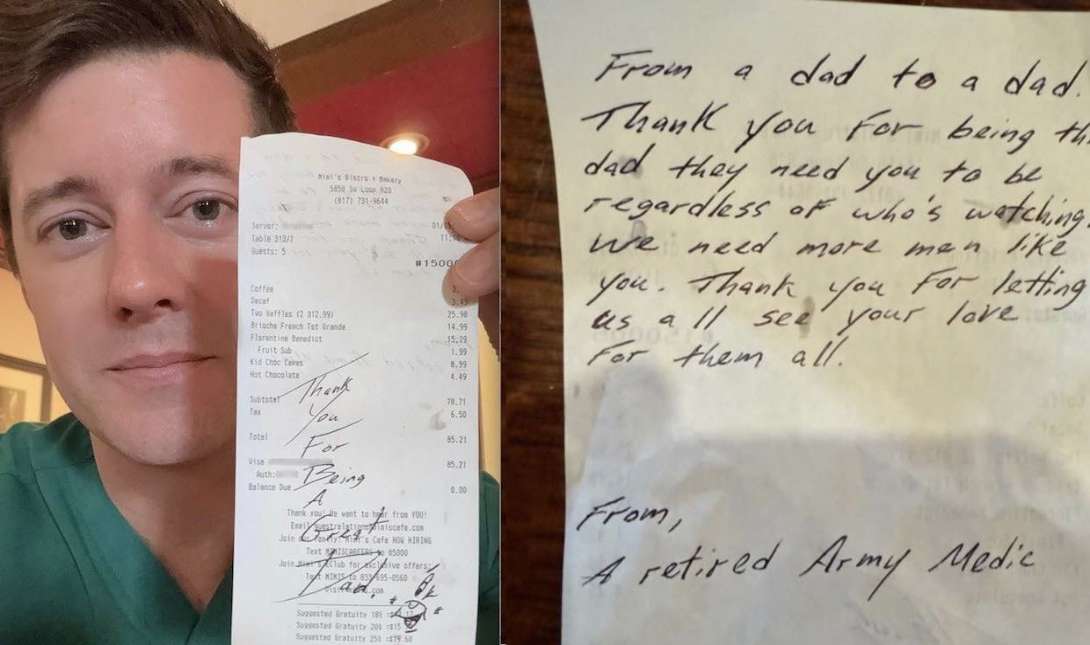 Mimi's Bistro + Bakery
5858 SW Loop 820
(817) 731-9644
Server:
Table 310/1
Guests: 5
Coffee
Decaf
Two Waffles (2 @12.99) 25.98
Brioche French Tst Grande 14.99
Florentine Benedict
Fruit Sub 1.99
Kid Choc Cakes 8.99
Hot Chocolate 4.49
Subtotal 78.71
Tax 6.50
Total 85.21
Visa 85.21
Auth:
Balance Due 0.00
Thank you! We want to hear from YOU!
Email
Join our family! Mimi's Cafe NOW HIRING
Text
Join Mimi's Club for exclusive offers:
Suggested Gratuity 18%
Suggested Gratuity 20%
Suggested Gratuity 25%
Thank
You
For
Being
A
Great
Dad!
From a dad to a dad.
Thank you for being th
dad they need you to be
regardless of who's watching.
We need more men like
you. Thank you for letting
us all see your love
for them all.
From,
A retired Army Medic